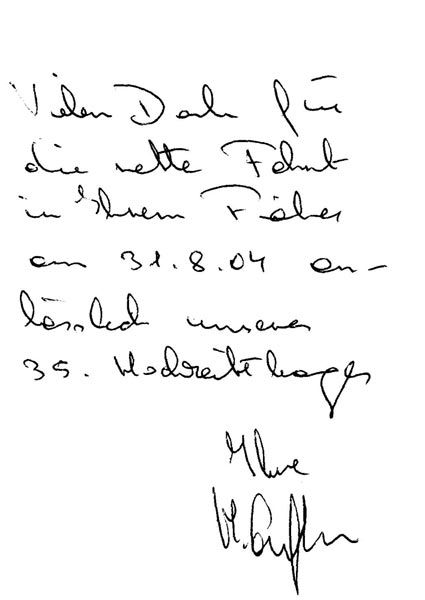 Vielen Dank für
die nette Fahrt
in Ihrem Fiaker
am 31.8.04 an-
lässlich unseres
35. Hochzeitstages
Ihre